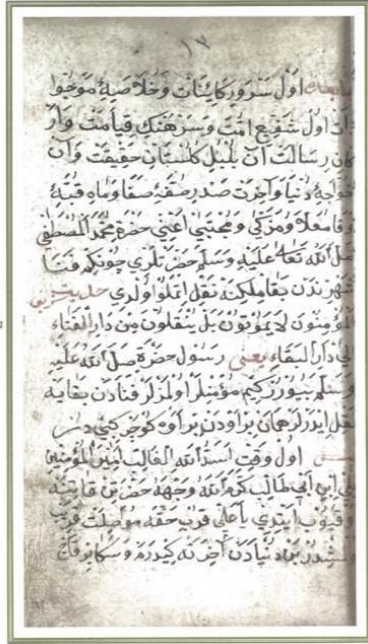 ١٧
اول سرور كائنات وخلاصۀ موجودا
ت اول شفيع امت وسرهنك قيامت وار
كان رسالت آن بلبل كلستان حقيقت وآن
خواجۀ دنيا وآخرت صدر صفۀ صفا وماه قبۀ
وفا معلا ومزكى ومجتبى اعنى حضرة محمد المصطفى
صلى الله تعالى عليه وسلم حضرتلرى چونكم فنا
شهرندن بقا ملكنه نقل اتملو اولدى حديث
المؤمنون لا يموتون بل ينقلون من دار الفناء
الى دار البقاء يعنى رسول حضرة صلى الله عليه
وسلم بيوررکیم مؤمنلر اولمزلر فنادن بقايه
نقل ايدرلر همان بر اودن بر اوه كوچر كبى در
اول وقت اسد الله الغالب امير المؤمنين
على ابن ابى طالب كرم الله وجهه حضرتن قاتينه
وقيوب ايتدى يا على قرب حقه مواصلت قريب
اولمشدر بن دنيادن آخرته كيدرم وسكا بر قاچ